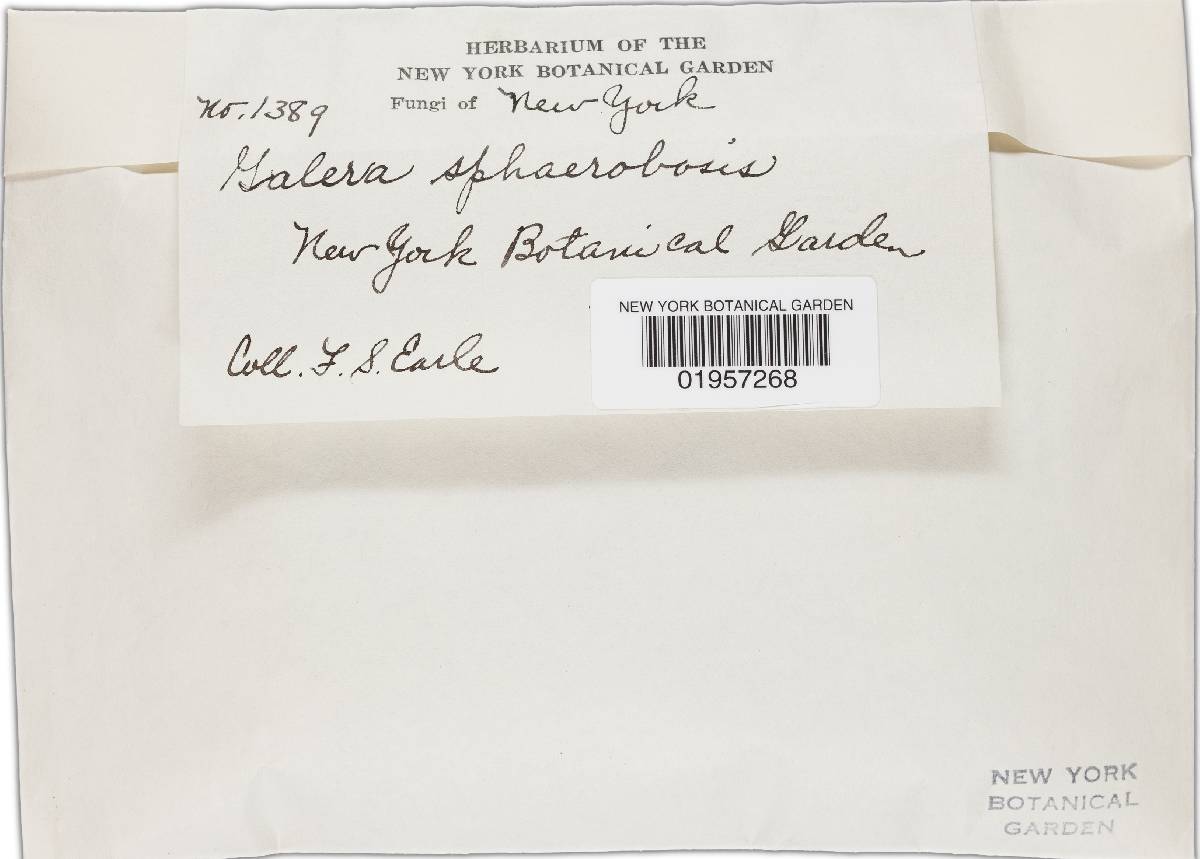 HERBARIUM OF THE
NEW YORK BOTANICAL GARDEN
No. 1389 Fungi of New York
Galera sphaerobosis
New York Botanical Garden
Coll. F. S. Earle
NEW YORK BOTANICAL GARDEN
01957268
NEW YORK
BOTANICAL
GARDEN